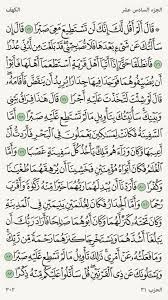 الجزء السادس عشر الكهف
۞ قَالَ أَلَمْ أَقُل لَّكَ إِنَّكَ لَن تَسْتَطِيعَ مَعِيَ صَبْرًا ٧٥ قَالَ إِن
سَأَلْتُكَ عَن شَيْءٍ بَعْدَهَا فَلَا تُصَٰحِبْنِي قَدْ بَلَغْتَ مِن لَّدُنِّي عُذْرًا
٧٦ فَٱنطَلَقَا حَتَّىٰٓ إِذَآ أَتَيَآ أَهْلَ قَرْيَةٍ ٱسْتَطْعَمَآ أَهْلَهَا فَأَبَوْا۟
أَن يُضَيِّفُوهُمَا فَوَجَدَا فِيهَا جِدَارًا يُرِيدُ أَن يَنقَضَّ فَأَقَامَهُۥ
قَالَ لَوْ شِئْتَ لَتَّخَذْتَ عَلَيْهِ أَجْرًا ٧٧ قَالَ هَٰذَا فِرَاقُ بَيْنِي
وَبَيْنِكَ سَأُنَبِّئُكَ بِتَأْوِيلِ مَا لَمْ تَسْتَطِع عَّلَيْهِ صَبْرًا ٧٨
أَمَّا ٱلسَّفِينَةُ فَكَانَتْ لِمَسَٰكِينَ يَعْمَلُونَ فِي ٱلْبَحْرِ فَأَرَدتُّ أَنْ
أَعِيبَهَا وَكَانَ وَرَآءَهُم مَّلِكٌ يَأْخُذُ كُلَّ سَفِينَةٍ غَصْبًا ٧٩
وَأَمَّا ٱلْغُلَٰمُ فَكَانَ أَبَوَاهُ مُؤْمِنَيْنِ فَخَشِينَآ أَن يُرْهِقَهُمَا طُغْيَٰنًا
وَكُفْرًا ٨٠ فَأَرَدْنَآ أَن يُبْدِلَهُمَا رَبُّهُمَا خَيْرًا مِّنْهُ زَكَوٰةً وَأَقْرَبَ
رُحْمًا ٨١ وَأَمَّا ٱلْجِدَارُ فَكَانَ لِغُلَٰمَيْنِ يَتِيمَيْنِ فِي ٱلْمَدِينَةِ
وَكَانَ تَحْتَهُۥ كَنزٌ لَّهُمَا وَكَانَ أَبُوهُمَا صَٰلِحًا فَأَرَادَ رَبُّكَ أَن
يَبْلُغَآ أَشُدَّهُمَا وَيَسْتَخْرِجَا كَنزَهُمَا رَحْمَةً مِّن رَّبِّكَ
وَمَا فَعَلْتُهُۥ عَنْ أَمْرِي ذَٰلِكَ تَأْوِيلُ مَا لَمْ تَسْطِع عَّلَيْهِ صَبْرًا ٨٢
وَيَسْـَٔلُونَكَ عَن ذِي ٱلْقَرْنَيْنِ قُلْ سَأَتْلُوا۟ عَلَيْكُم مِّنْهُ ذِكْرًا ٨٣
الحزب ٣١ ٣٠٢